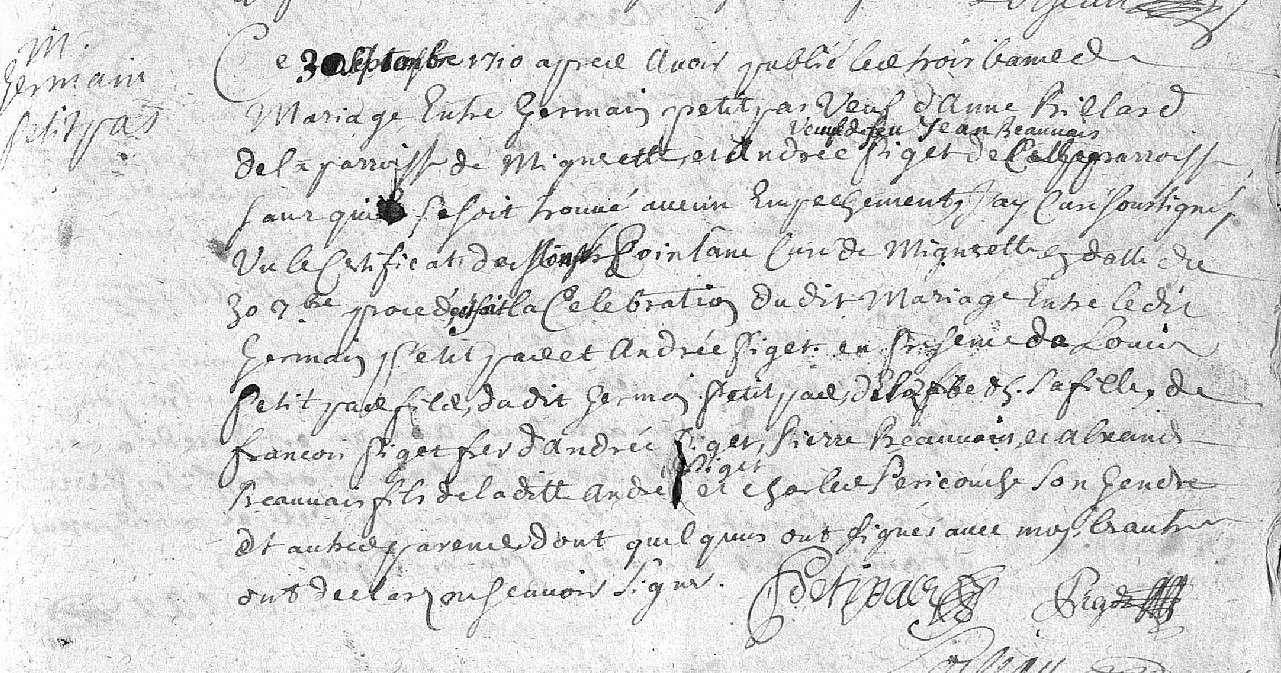 M.
Germain
petitpas
Ce 30 septembre 1710 apres avoir publié les trois bans de
Mariage Entre Germain petitpas Veuf d'Anne Billard
Veuve de feu Jean Beauvais
de la parroisse de et Andrée Piget de Cette parroisse
sans qu'il se soit trouvé aucun Empechement, J'ay Curé soussigné,
Vu le Certificat de Curé de en datte du
30 7bre procedé et fait la Celebration du dit Mariage Entre le dit
Germain Petitpas et Andrée Piget. en presence de Louis
Petitpas fils, du dit Germain Petitpas, de sa fille, de
francois Piget frer d'Andrée Piget, Pierre Beauvais, et
Beauvais fils de la ditte Andrée Piget et Charles son Gendre
Et autres parens dont quelques uns ont signés avec moy, les autres
ont declaré ne scavoir signer. Petitpas Piget